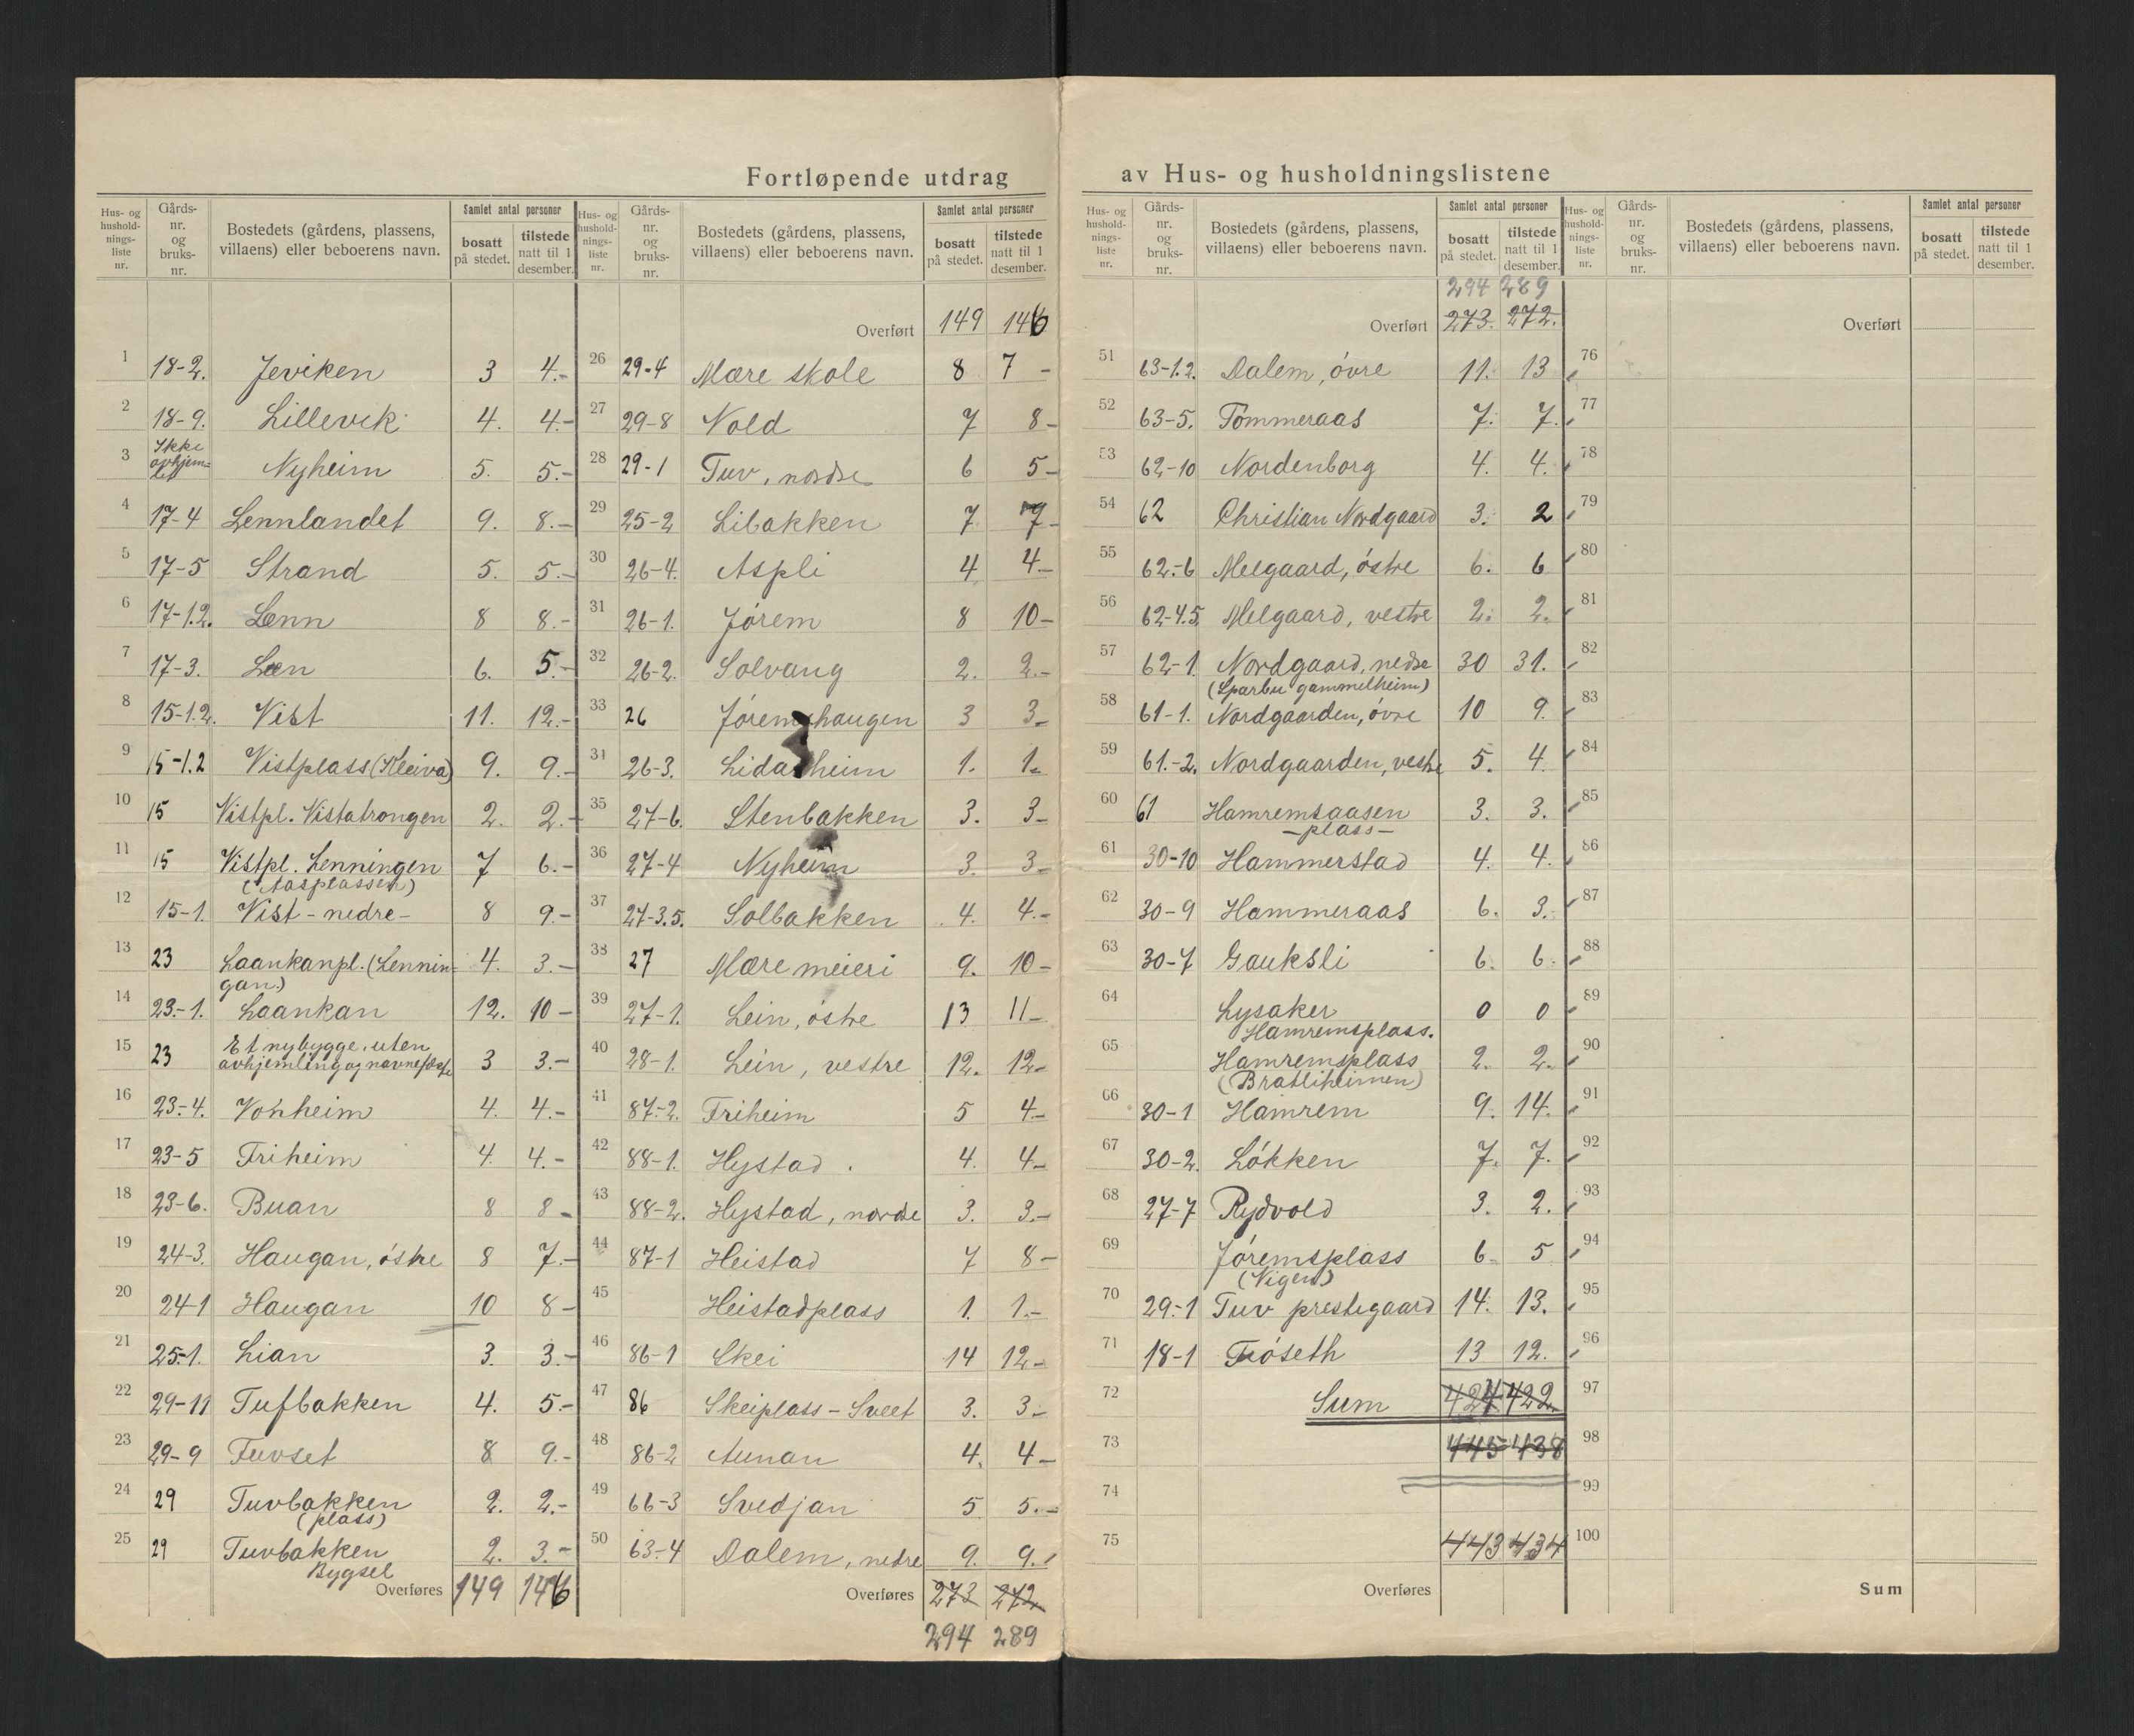 Fortløpende utdrag av Hus- og husholdningslistene
Hus- og hushold-nings-liste nr. | Gårds-nr. og bruks-nr. | Bostedets (gårdens, plassens, villaens) eller beboerens navn. | Samlet antal personer | bosatt på stedet. | tilstede natt til 1 desember.
1 18-2. Jeviken 3 4.-
2 18-9. Lillevik 4. 4.-
3 Ikke avhjem-let Nyheim 5. 5.-
4 17-4 Lennlandet 9. 8.-
5 17-5 Strand 5. 5.-
6 17-1.2. Lenn 8 8.-
7 17-3. Læn 6. 5.-
8 15-1.2. Vist 11. 12.-
9 15-1.2 Vistplass (Kleiva) 9. 9.-
10 15 Vistpl. Vistatrongen 2. 2.-
11 15 Vistpl. Lenningen 7 6.-
(Aasplassen)
12 15-1. Vist - nedre - 8 9.-
13 23 Laankanpl. (Lennin- 4. 3.-
gan.)
14 23.-1. Laankan 12. 10 -
15 23 Et nybygge, uten
avhjemling og navnefæste 3 3.-
16 23.-4. Vonheim 4. 4.-
17 23-5 Friheim 4. 4.-
18 23-6. Buan 8 8 -
19 24-3. Haugan, östre 8 7.-
20 24-1 Haugan 10 8 -
21 25-1. Lian 3. 3.-
22 29-11 Tufbakken 4. 5.-
23 29-9 Tuvset 8 9.-
24 29 Tuvbakken 2. 2.-
(plass)
25 29 Tuvbakken 2. 3.-
Bygsel
Overføres 149 146
Hus- og hushold-nings-liste nr. | Gårds-nr. og bruks-nr. | Bostedets (gårdens, plassens, villaens) eller beboerens navn. | Samlet antal personer | bosatt på stedet. | tilstede natt til 1 desember.
Overført 149 146
26 29-4 Mære skole 8 7 -
27 29-8 Vold 7 8 -
28 29-1 Tuv, nordre 6 5 -
29 25-2 Libakken 7 7 -
30 26-4. Aspli 4 4.-
31 26-1. Jörem 8 10 -
32 26-2. Solvang 2. 2.-
33 26 Jöremshaugen 3 3.-
34 26-3. Lidarheim 1. 1.-
35 27-6. Stenbakken 3. 3 -
36 27-4 Nyheim 3. 3 -
37 27-3.5. Solbakken 4. 4.-
38 27 Mære meieri 9. 10 -
39 27-1. Lein, östre 13 11 -
40 28-1. Lein, vestre 12. 12 -
41 87.-2. Friheim 5 4 -
42 88-1. Hystad 4. 4 -
43 88-2. Hystad, nordre 3. 3.-
44 87-1 Heistad 7 8 -
45 Heistadplass 1. 1.-
46 86-1 Skei 14 12.-
47 86 Skeiplass - Sveet 3. 3.-
48 86-2 Aunan 4. 4 -
49 66-3 Svedjan 5 5.-
50 63-4 Dalem, nedre 9. 9.
Overføres 273 272
294 289
Hus- og hushold-nings-liste nr. | Gårds-nr. og bruks-nr. | Bostedets (gårdens, plassens, villaens) eller beboerens navn. | Samlet antal personer | bosatt på stedet. | tilstede natt til 1 desember.
294 289
Overført 273. 272.
51 63-1.2. Dalem, övre 11. 13
52 63-5. Tömmeraas 7. 7.
53 62-10 Nordenborg 4. 4.
54 62 Christian Nordgaard 3. 2
55 62.-6 Melgaard, östre 6. 6
56 62-4.5. Melgaard, vestre 2. 2.
57 62-1 Nordgaard, nedre 30 31.
(Sparbu gammelheim)
58 61-1. Nordgaarden, övre 10 9.
59 61.-2. Nordgaarden, vestre 5. 4.
60 61 Hamremsaasen 3. 3.
- plass -
61 30-10 Hammerstad 4. 4.
62 30-9 Hammeraas 6. 3.
63 30-7 Gauksli 6. 6.
64 Lysaker 0 0
Hamremsplass.
65 Hamremsplass 2. 2.
(Bratliheimen)
66 30-1 Hamrem 9. 14.
67 30-2. Lökken 7. 7.
68 27-7 Rydvold 3. 2.
69 Jöremsplass 6. 5
(Vigen)
70 29.-1 Tuv prestegaard 14. 13.
71 18-1 Fröseth 13 12.
72 Sum 424 422
73 445 438
74
75 443 434
Overføres
Hus- og hushold-nings-liste nr. | Gårds-nr. og bruks-nr. | Bostedets (gårdens, plassens, villaens) eller beboerens navn. | Samlet antal personer | bosatt på stedet. | tilstede natt til 1 desember.
Overført
76
77
78
79
80
81
82
83
84
85
86
87
88
89
90
91
92
93
94
95
96
97
98
99
100
Sum